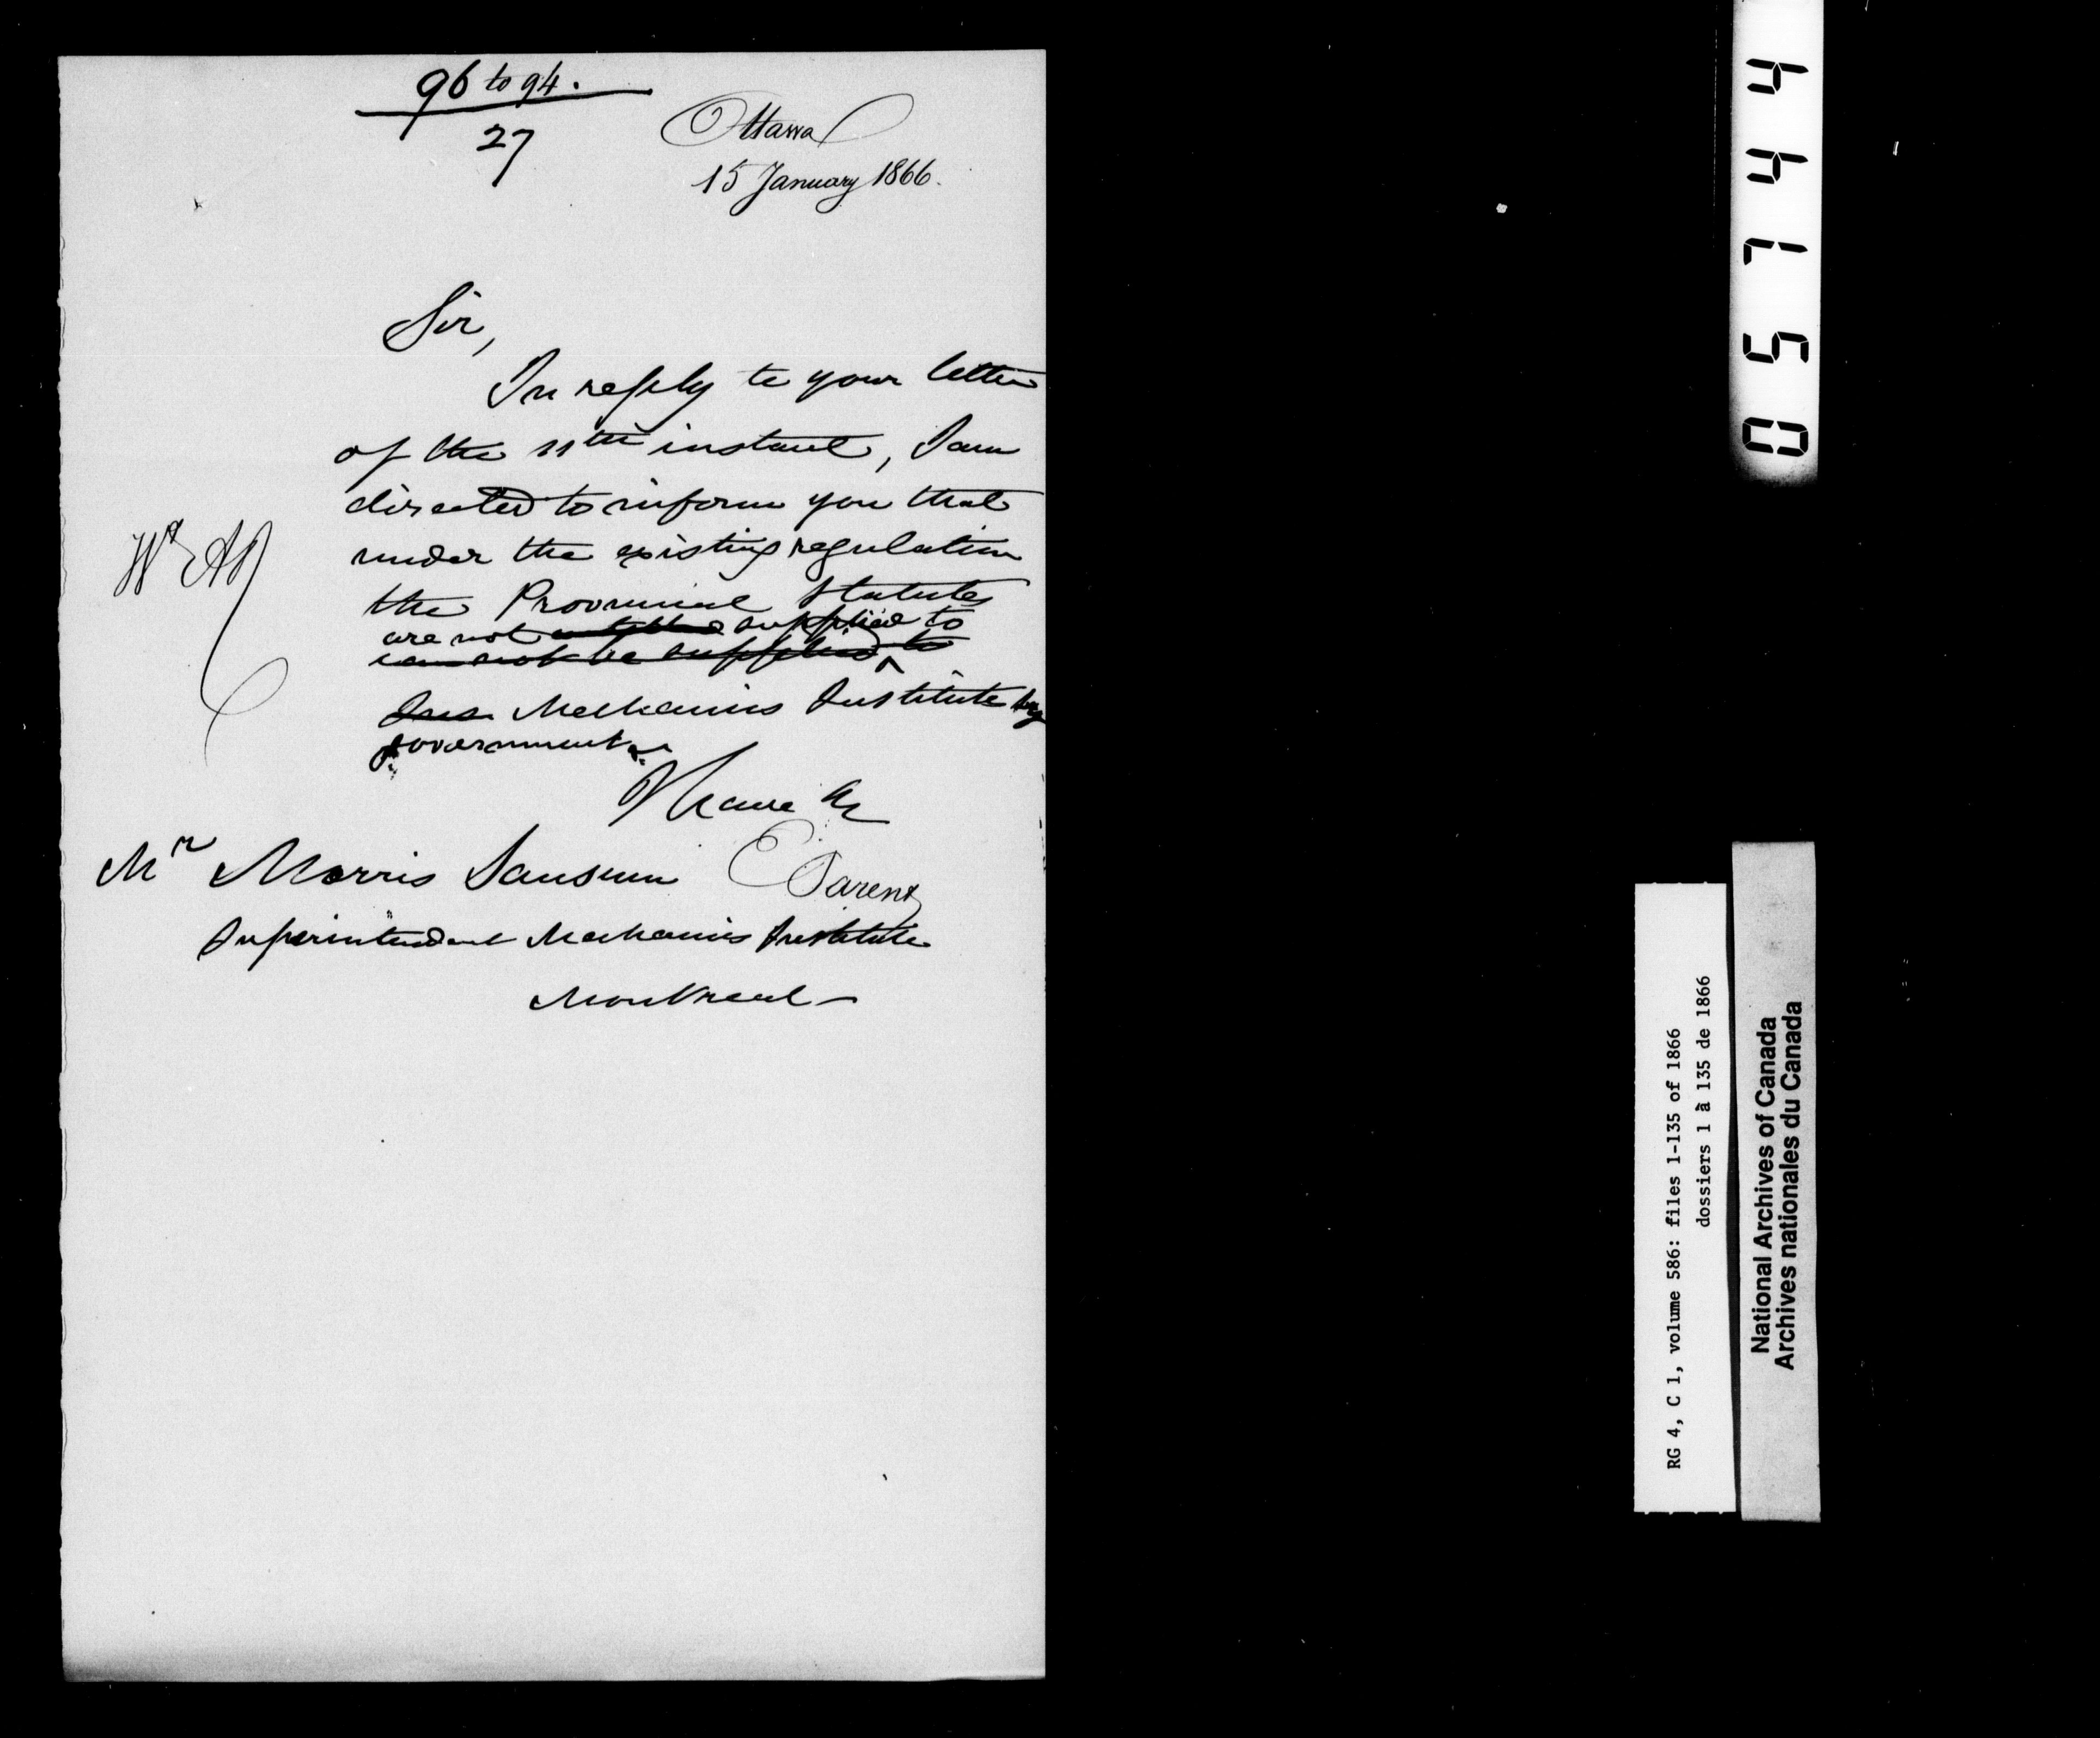 96 to 94.
27
Ottawa
15 January 1866.
Sir,
In reply to your letter
of the 11th instant, I am
directed to inform you that
under the existing regulation
the Provincial Statutes
are not supplied to
can not be supplied to
Mechanics Institute by
Government.
I have &c
E Parent
Mr Morris Sansum
Superintendent Mechanics Institute
Montreal
44150
RG 4, C 1, volume 586: files 1-135 of 1866
dossiers 1 à 135 de 1866
National Archives of Canada
Archives nationales du Canada